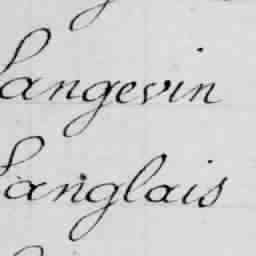 Langevin
Langlais